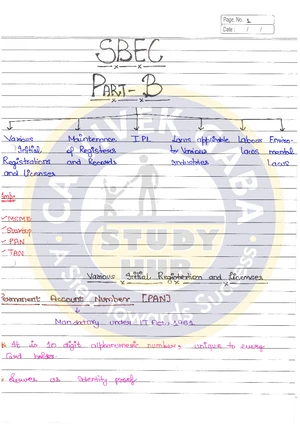 Page No. 1
Date : / /
SBEC
PART-B
Various Maintenance IPL Laws applicable Labour Environ-
Initial of Registers to Various Laws mental
Registrations and Records Industries Laws
and Licenses
MSME
Startup
PAN
TAN
Various Initial Registration and Licenses
Permanent Account Number [PAN]
Mandatory under IT Act, 1961
It is 10 digit alphanumeric number, unique to every
Card holder.
Serves as Identity proof
STUDY
HUB
A Step Towards Success